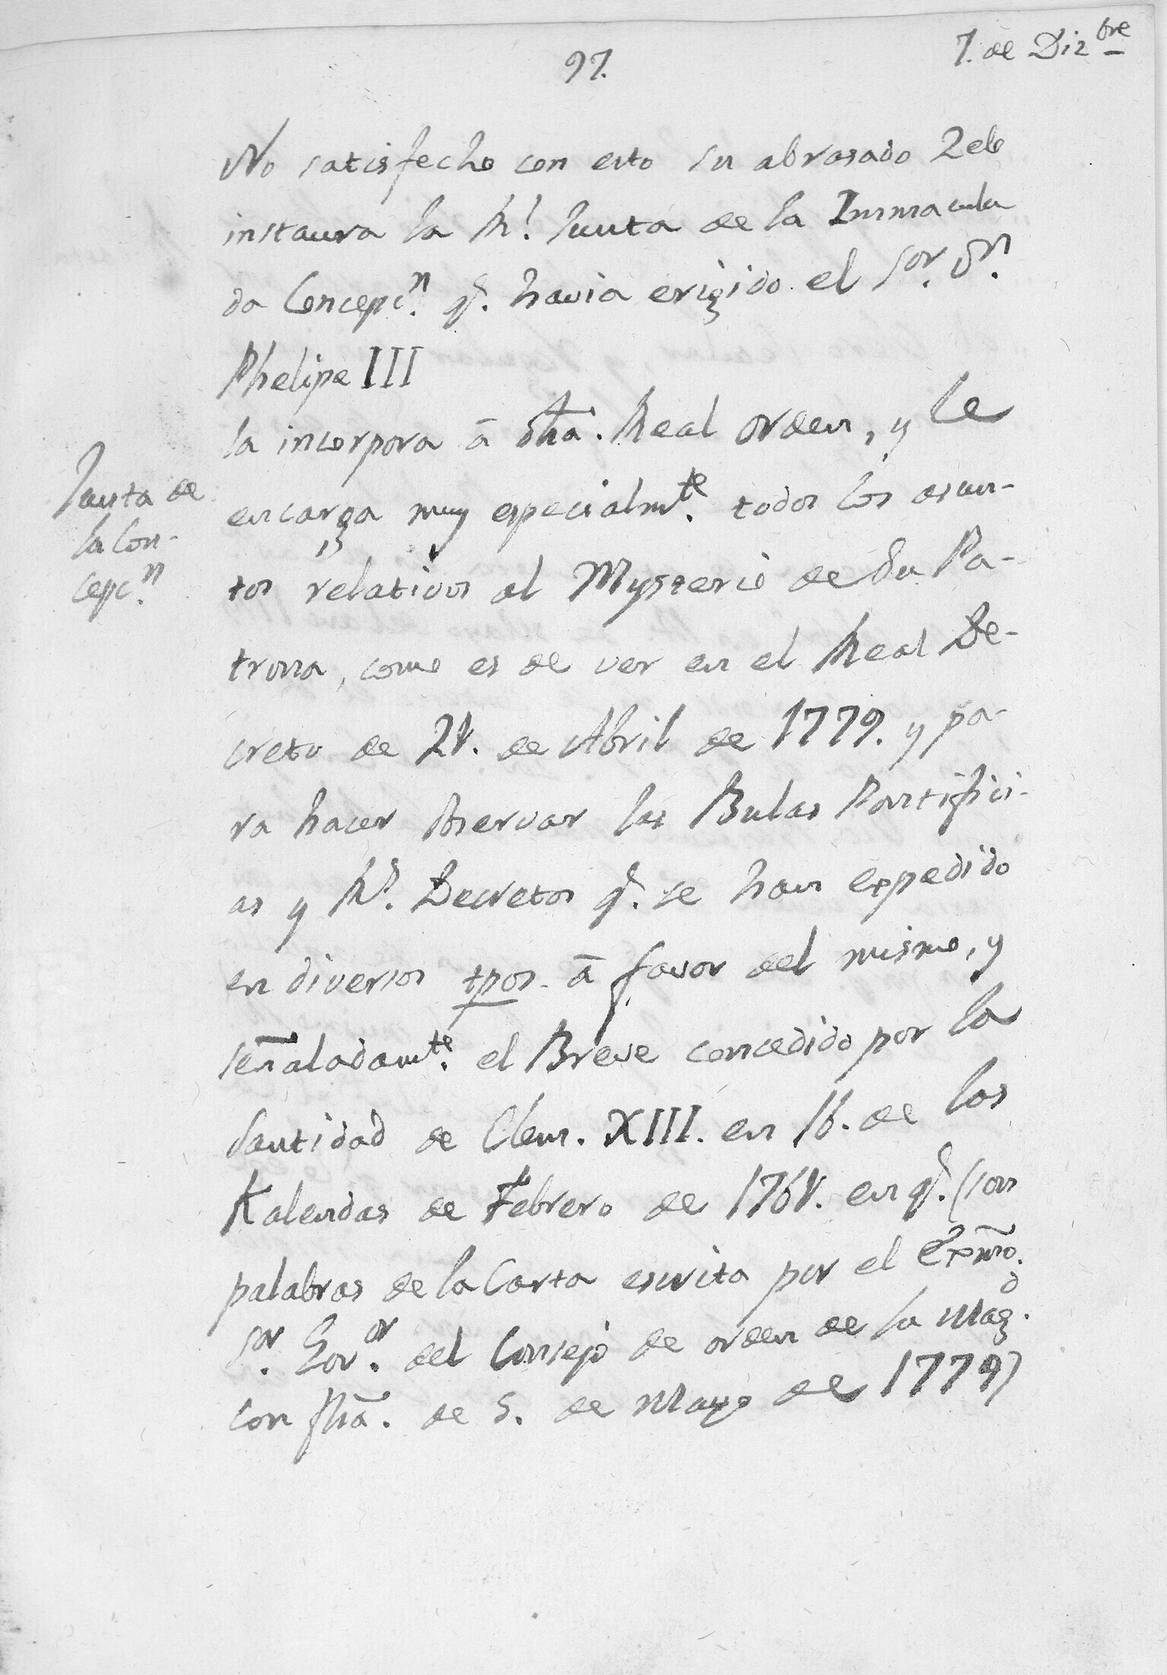 97.
7. de Diz^bre
No satisfecho con esto su abrasado Zelo
instaura la R^l. Junta de la Inmacula
da Concepc^n. q^e. havia erigido el S^or. D^n.
Phelipe III
la incorpora â dh̃a. Real orden, y le
encarga muy especialm^te. todos los asun-
tos relativos al Mysterio de Su Pa-
trona, como es de ver en el Real De-
creto de 21. de Abril de 1779. y pa-
ra hacer observar las Bulas Pontifici-
as y R^s. Decretos q^e. se han expedido
en diversos tpos. â favor del mismo, y
señaladam^te. el Breve concedido por la
Santidad de Clem. XIII. en 16. de las
Kalendas de Febrero de 1761. en q^e. (con
palabras de la Carta escrita por el Exm̃o.
S^or. Gov^or. del Consejo de orden de la Mag^d.
con fh̃a. de 5. de Mayo de 1779)
Junta de
la Con-
cepc^n.